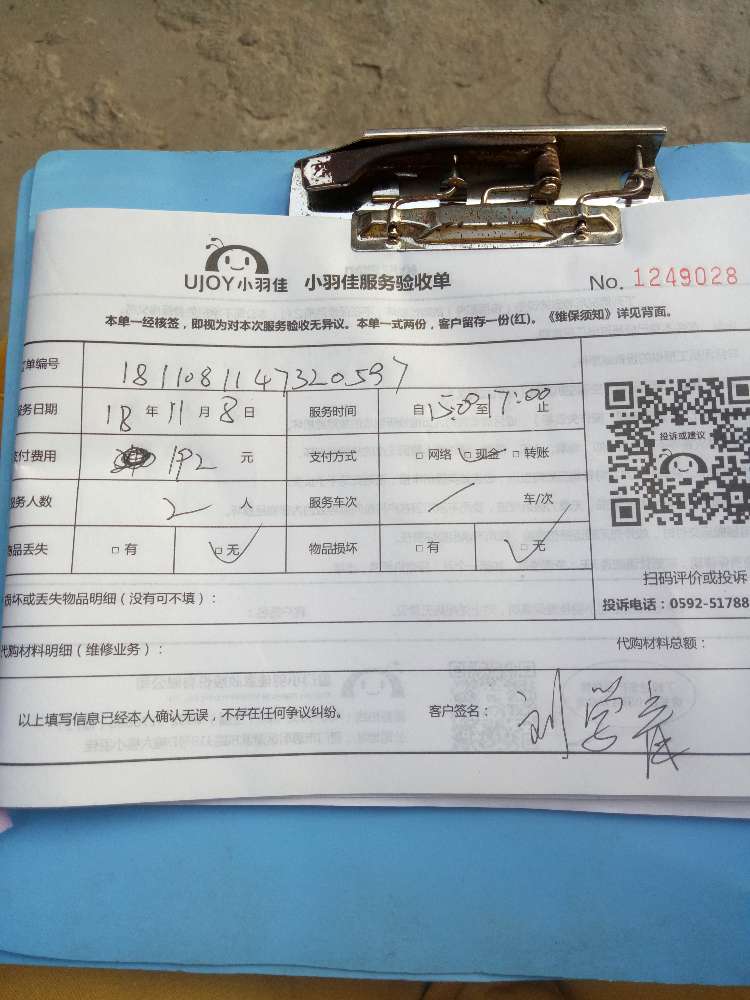 UJOY小羽佳 小羽佳服务验收单 No. 1249028
本单一经核签，即视为对本次服务验收无异议。本单一式两份，客户留存一份(红)。《维保须知》详见背面。
单编号 1811081147320597
务日期 18 年 11 月 8 日 服务时间 自 15:00 至 17:00 止
付费用 192 元 支付方式 □ 网络 □ 现金 □ 转账
务人数 2 人 服务车次 / 车/次
品丢失 □ 有 □ 无 物品损坏 □ 有 □ 无
投诉或建议
扫码评价或投诉
投诉电话：0592-51788
损坏或丢失物品明细（没有可不填）：
代购材料明细（维修业务）： 代购材料总额：
以上填写信息已经本人确认无误，不存在任何争议纠纷。 客户签名： 刘学彦